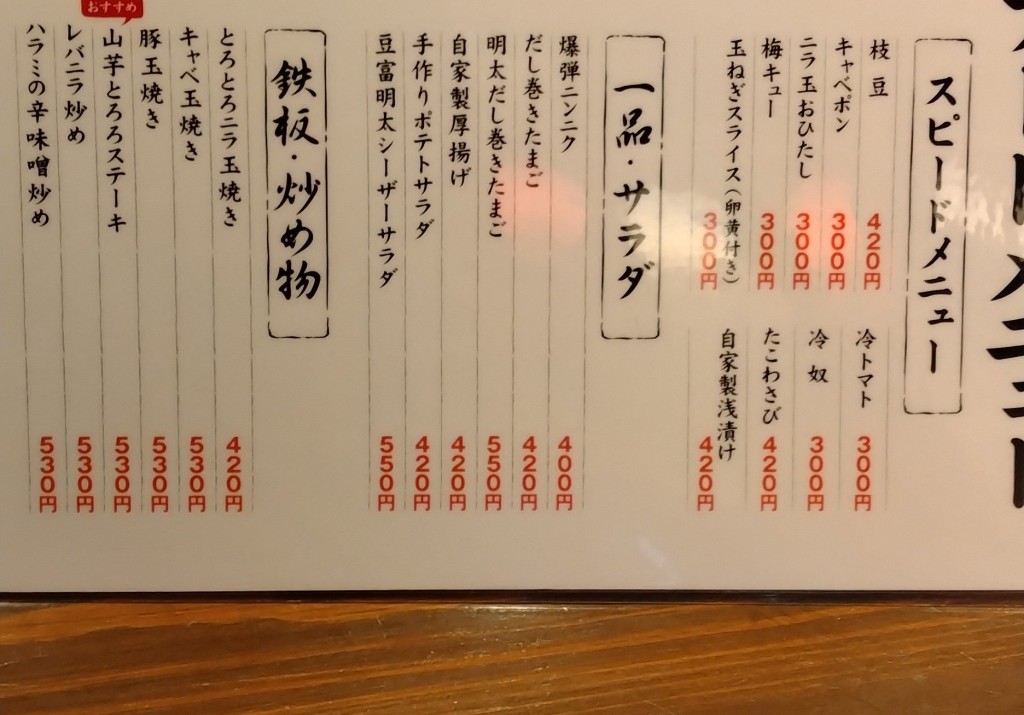 スピードメニュー
枝豆 420円
キャベポン 300円
ニラ玉おひたし 300円
梅キュー 300円
玉ねぎスライス(卵黄付き) 300円
冷トマト 300円
冷奴 300円
たこわさび 420円
自家製浅漬け 420円
一品・サラダ
爆弾ニンニク 400円
だし巻きたまご 420円
明太だし巻きたまご 550円
自家製厚揚げ 420円
手作りポテトサラダ 420円
豆富明太シーザーサラダ 550円
鉄板・炒め物
とろとろニラ玉焼き 420円
キャベ玉焼き 530円
豚玉焼き 530円
おすすめ
山芋とろろステーキ 530円
レバニラ炒め 530円
ハラミの辛味噌炒め 530円